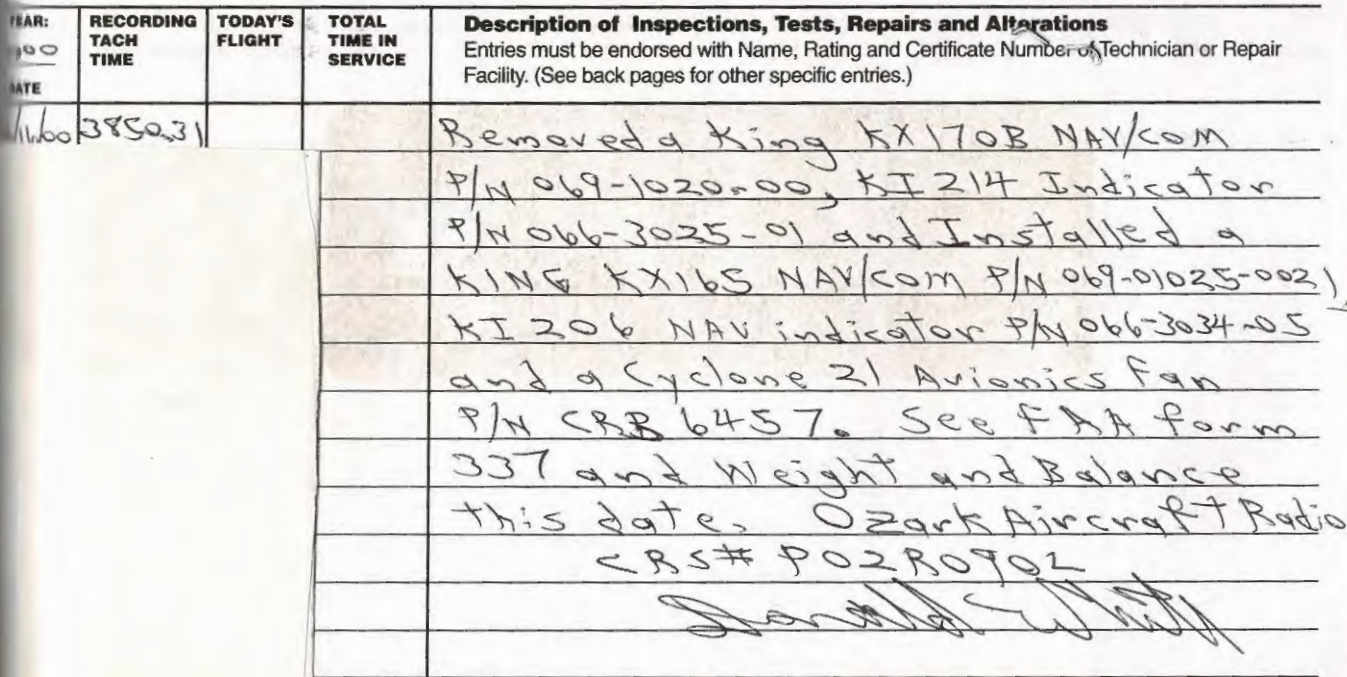 RECORDING TACH TIME
TODAY'S FLIGHT
TOTAL TIME IN SERVICE
Description of Inspections, Tests, Repairs and Alterations
Entries must be endorsed with Name, Rating and Certificate Number of Technician or Repair
Facility. (See back pages for other specific entries.)
3850.31
Removed a King KX170B NAV/COM
P/N 069-1020-00, KI 214 Indicator
P/N 066-3025-01 and Installed a
KING KX165 NAV/COM P/N 069-01025-0021,
KI 206 NAV indicator P/N 066-3034-05
and a Cyclone 21 Avionics Fan
P/N CRB 6457. See FAA form
337 and Weight and Balance
this date. Ozark Aircraft Radio
CRS# P02R0902